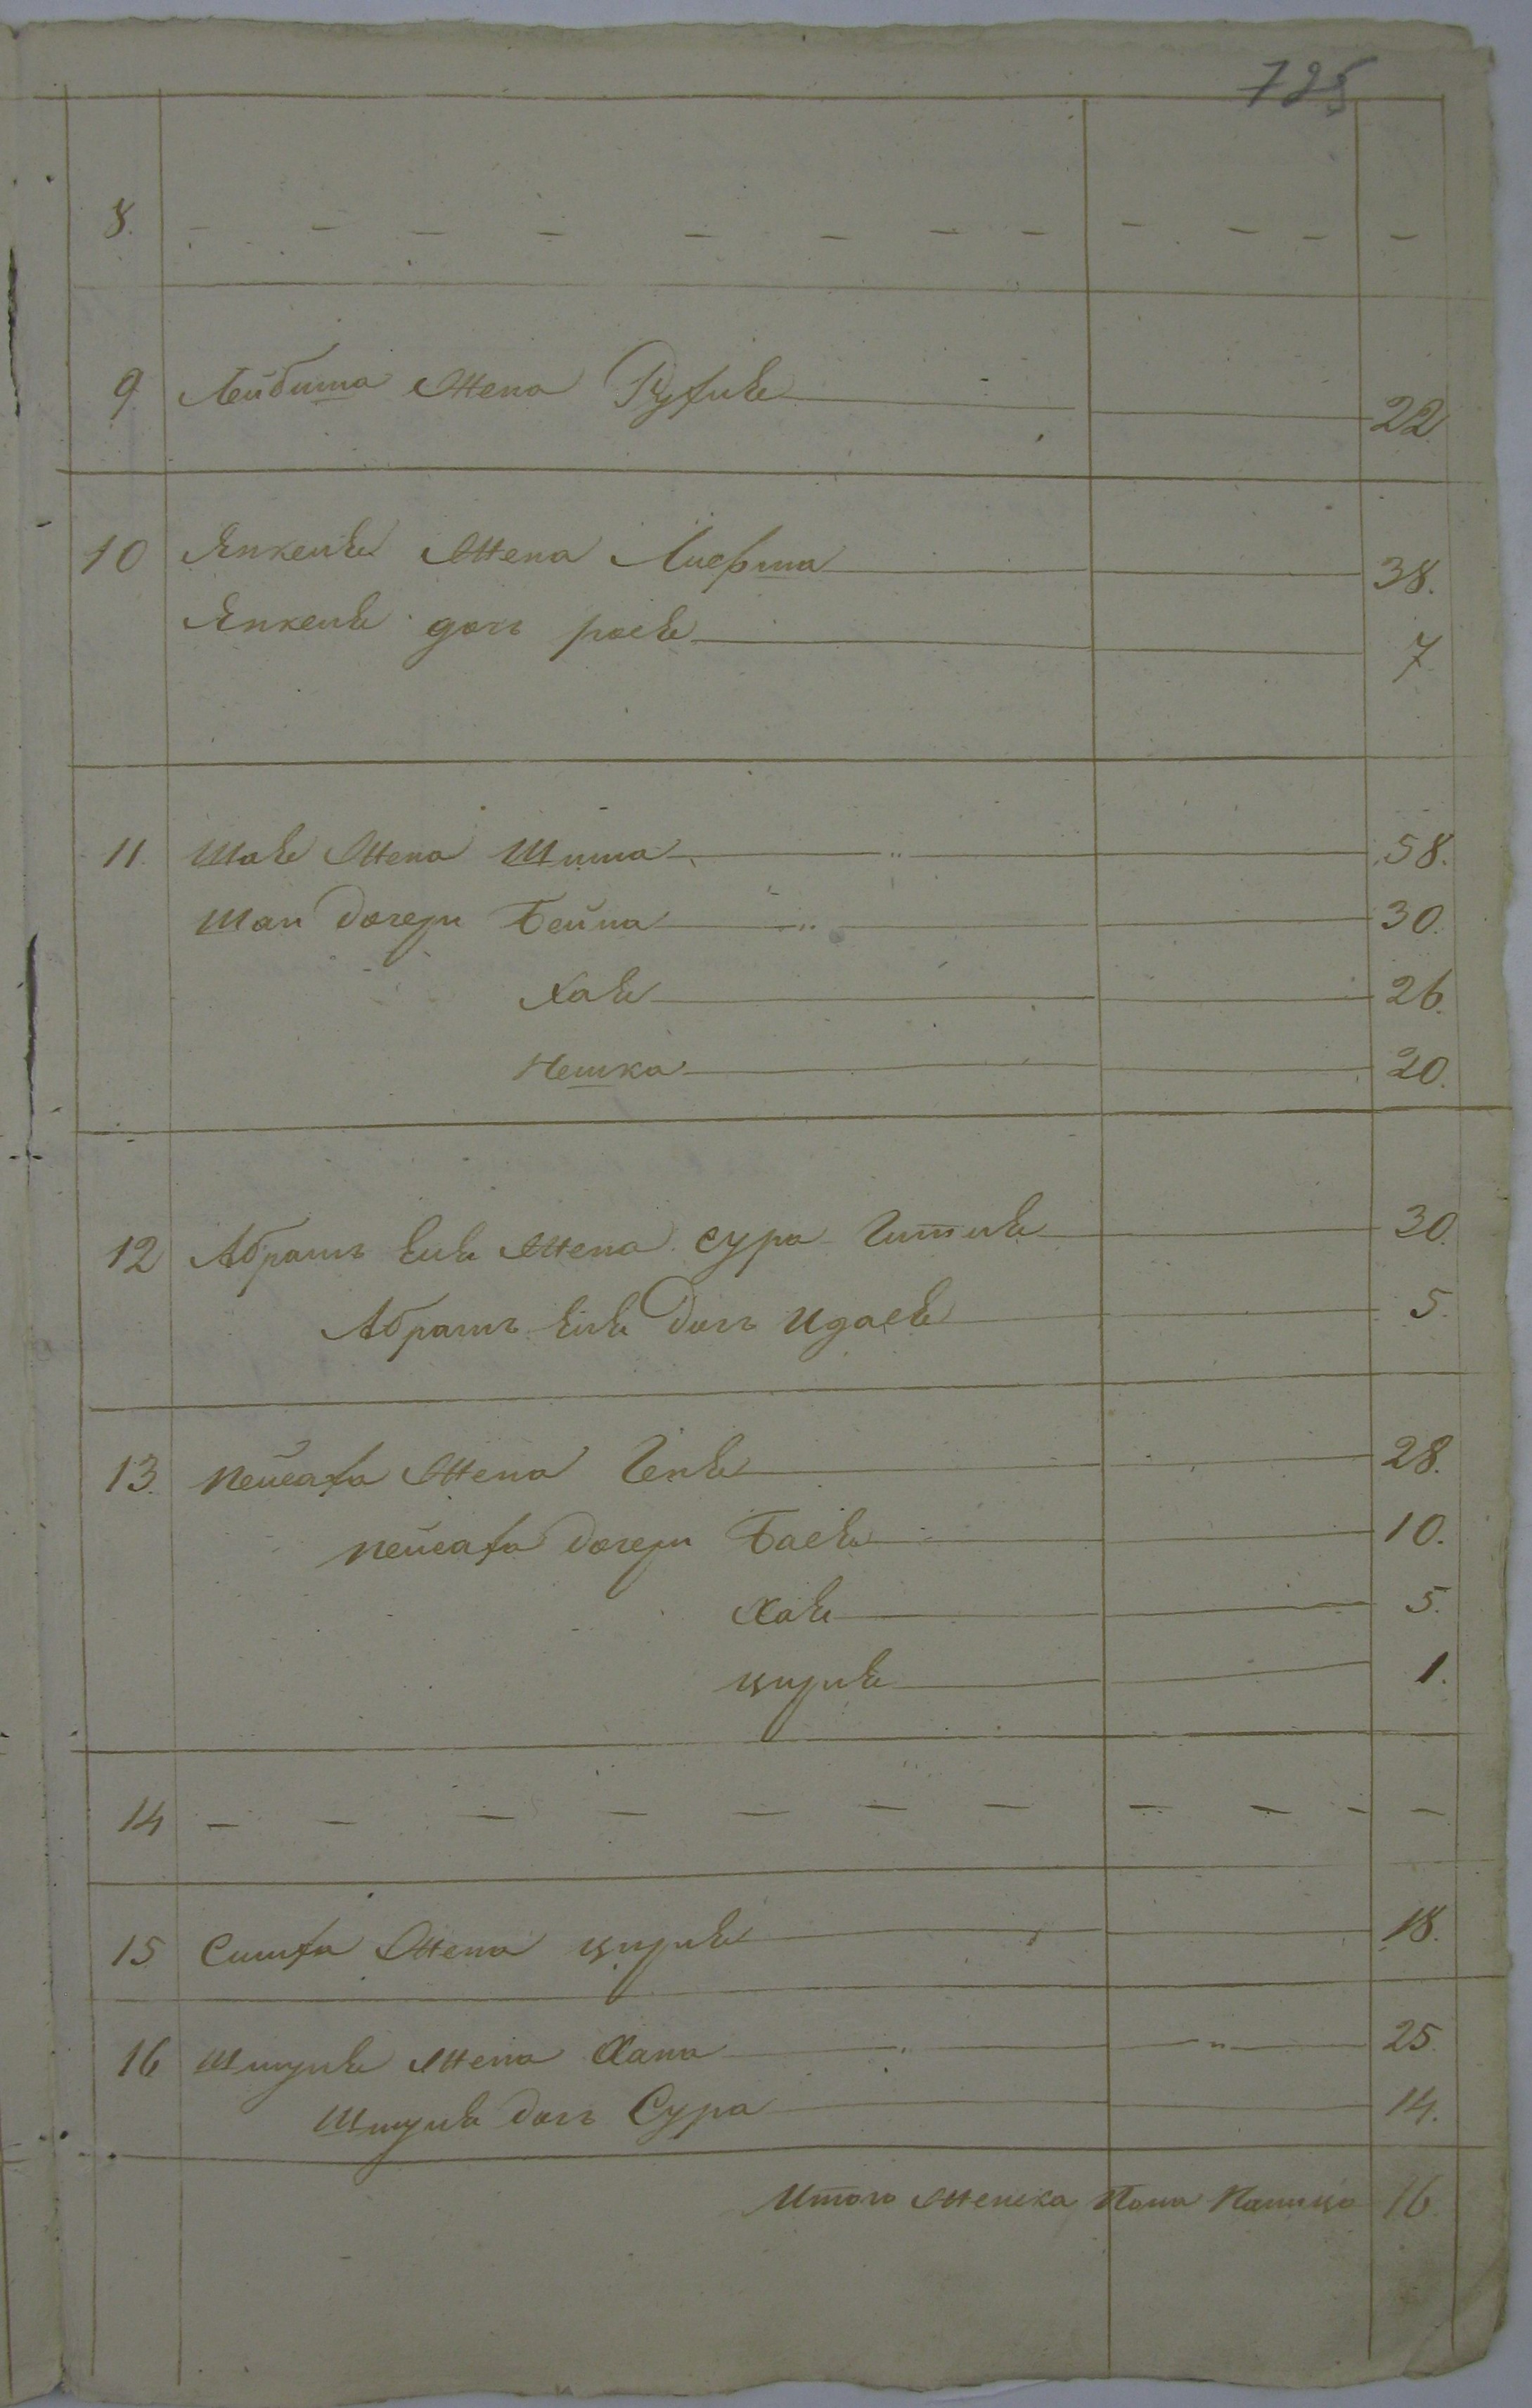 725
8. – – – – – – – – – – – –
9 Лейбиша жена Рухля 22.
10 Янкеля жена Лифша 38.
Янкеля дочь рося 7
11. Шаи жена Шима 58.
Шаи дочери Бейна 30.
Хая 26.
Нешка 20.
12 Абрамъ жена сура Гитля 30.
Абрамъ дочь Идася 5.
13. пейсаха жена Геня 28.
пейсаха дочери Бася 10.
Хая 5.
цирля 1.
14 – – – – – – – – – – –
15 Симха жена цирля 18.
16 Шмуйля жена Хана 25.
Шмуйля дочь Сура 14.
Итого женска пола 16.